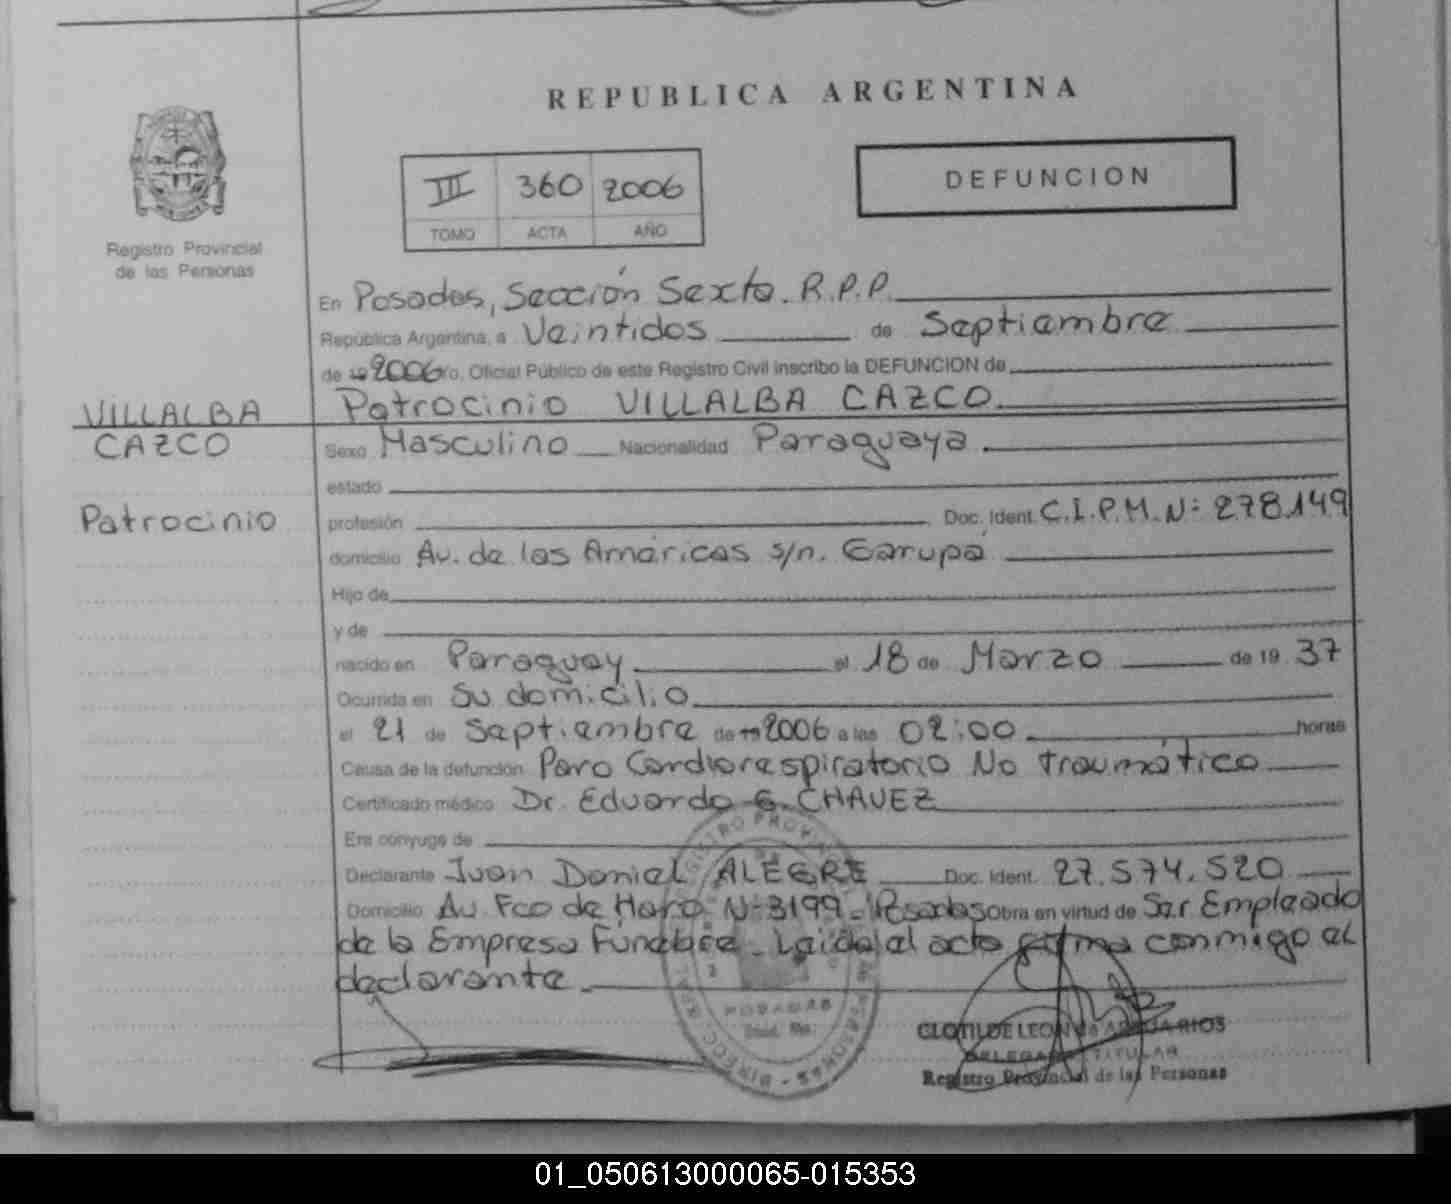 REPUBLICA ARGENTINA
III 360 2006
TOMO ACTA AÑO
DEFUNCION
Registro Provincial
de las Personas
En Posadas, Sección Sexta. R.P.P.
República Argentina, a Veintidos de Septiembre
de 19 2006 yo, Oficial Público de este Registro Civil inscribo la DEFUNCION de
Patrocinio VILLALBA CAZCO
VILLALBA
CAZCO
Patrocinio
Sexo Masculino Nacionalidad Paraguaya
estado
profesión Doc. Ident. C.I.P.M. Nº 278.149
domicilio Av. de las Américas s/n. Garupá
Hijo de
y de
nacido en Paraguay el 18 de Marzo de 19 37
Ocurrida en Su domicilio
el 21 de Septiembre de 19 2006 a las 02:00 horas
Causa de la defunción Paro Cardiorespiratorio No traumático
Certificado médico Dr. Eduardo G. CHAVEZ
Era cónyuge de
Declarante Juan Daniel ALEGRE Doc. Ident. 27.574.520
Domicilio Av. Fco de Haro Nº 3199 - Posadas Obra en virtud de Ser Empleado
de la Empresa Fúnebre - Leida el acta firma conmigo el
declarante
POSADAS
CLOTILDE LEON de RIOS
DELEGADA TITULAR
Registro Provincial de las Personas
01_050613000065-015353